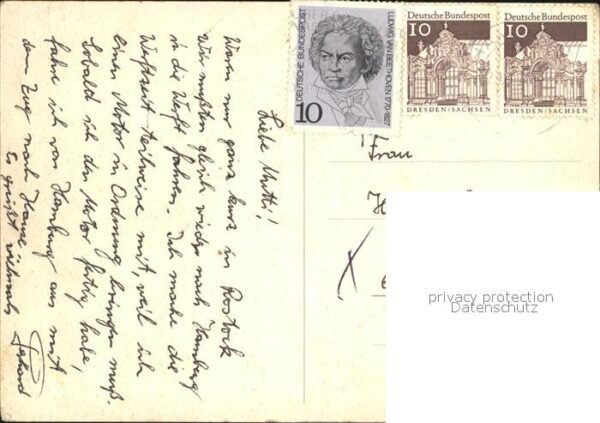 Liebe Mutti!
Waren nur ganz kurz in Rostock
Wir mußten gleich wieder nach Hamburg
in die Werft fahren. Ich mache die
Werftzeit teilweise mit, weil ich
einen Motor in Ordnung bringen muß.
Sobald ich den Motor fertig habe,
fahre ich von Hamburg aus mit
dem Zug nach Hause
Es grüßt vielmals
DEUTSCHE BUNDESPOST
10
LUDWIG VAN BEETHOVEN 1770-1827
Deutsche Bundespost
10
DRESDEN/SACHSEN
Deutsche Bundespost
10
DRESDEN/SACHSEN
Frau
privacy protection
Datenschutz